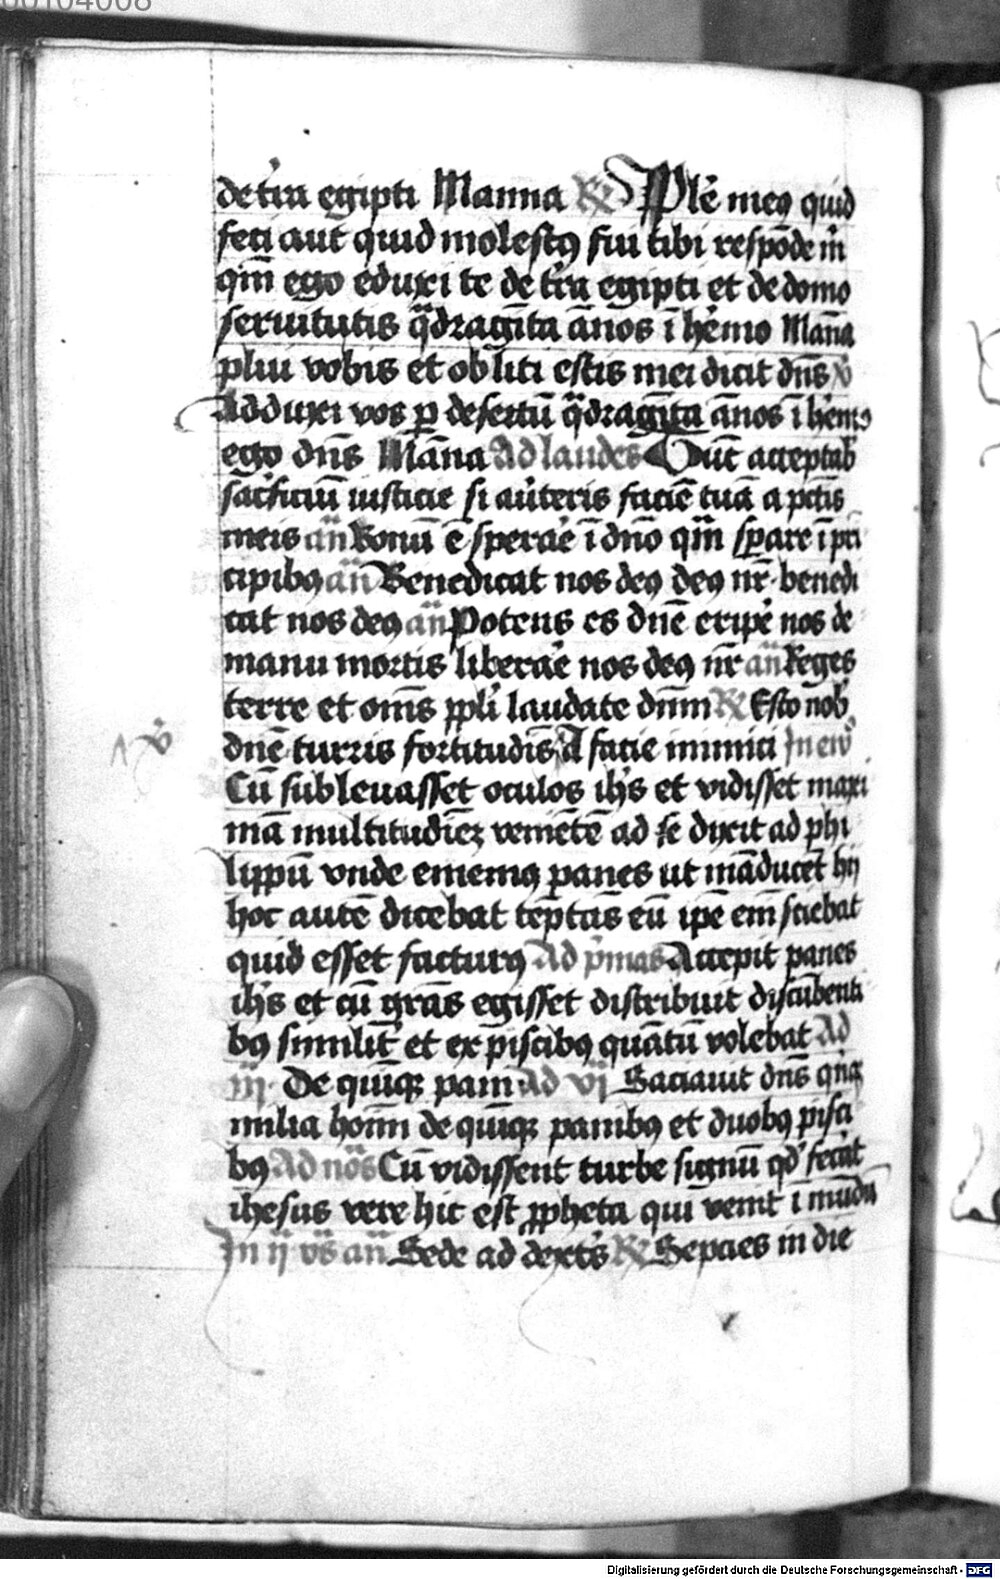 00104008
de tr̄a egipti Manna R̷ Ple̅ meꝰ quid
feci aut quid molestꝰ fui tibi respōde m̄
qm̄ ego eduxi te de tr̄a egipti et de domo
seruitutis q̈dragīta ānos ī he̅mo Māna
plui vobis et obliti estis mei dicit dn̄s v̓
Adduxi vos ꝑ desertū q̈dragīta ānos ī he̅mo
ego dn̄s Māna Ad laudes Tūc acceptab̓
sac̓ficiū iusticie si au̓teris faciē tuā a pctīs
meis an̄ Bonū ē sperar̓e ī dn̄o qm̄ sꝑare ī pri
cipibꝰ an̄ Benedicat nos deꝰ deꝰ nr̄ benedi
cat nos deꝰ an̄ Potens es dn̄e eripe̓ nos de
manu mortis liberar̓e nos deꝰ nr̄ an̄ Reges
terre et om̄s ppl̓i laudate dn̄m R̷ Esto nob̓
v̓
dn̄e turris fortitudīs A facie inimici In ew̄
Cū subleuasset oculos ih̄s et vidisset maxi
mā multitudīeꝫ veniētē ad se dixit ad phi
lippū vnde ememꝰ panes ut māducēt hij
hoc autē dicebat tēptās eū ip̄e em̄ sciebat
quid esset facturꝰ Ad p̓mas Accepit panes
ih̄s et cū gr̄as egisset distribuit discūbenti
bꝰ similit̓ et ex piscibꝰ quātū volebat Ad
iij De quīqꝫ pani Ad vj Saciauit dn̄s qīqꝫ
milia hoīm de quīqꝫ panibꝰ et duobꝰ pisci
bꝰ Ad nōs Cū vidissent turbe signū qd̓ fecit
ihesus vere hic est ꝓpheta qui venit ī mūdū
In ij vs̄ an̄ Sede ad dextīs R̷ Sepcies in die
Digitalisierung gefördert durch die Deutsche Forschungsgemeinschaft - DFG